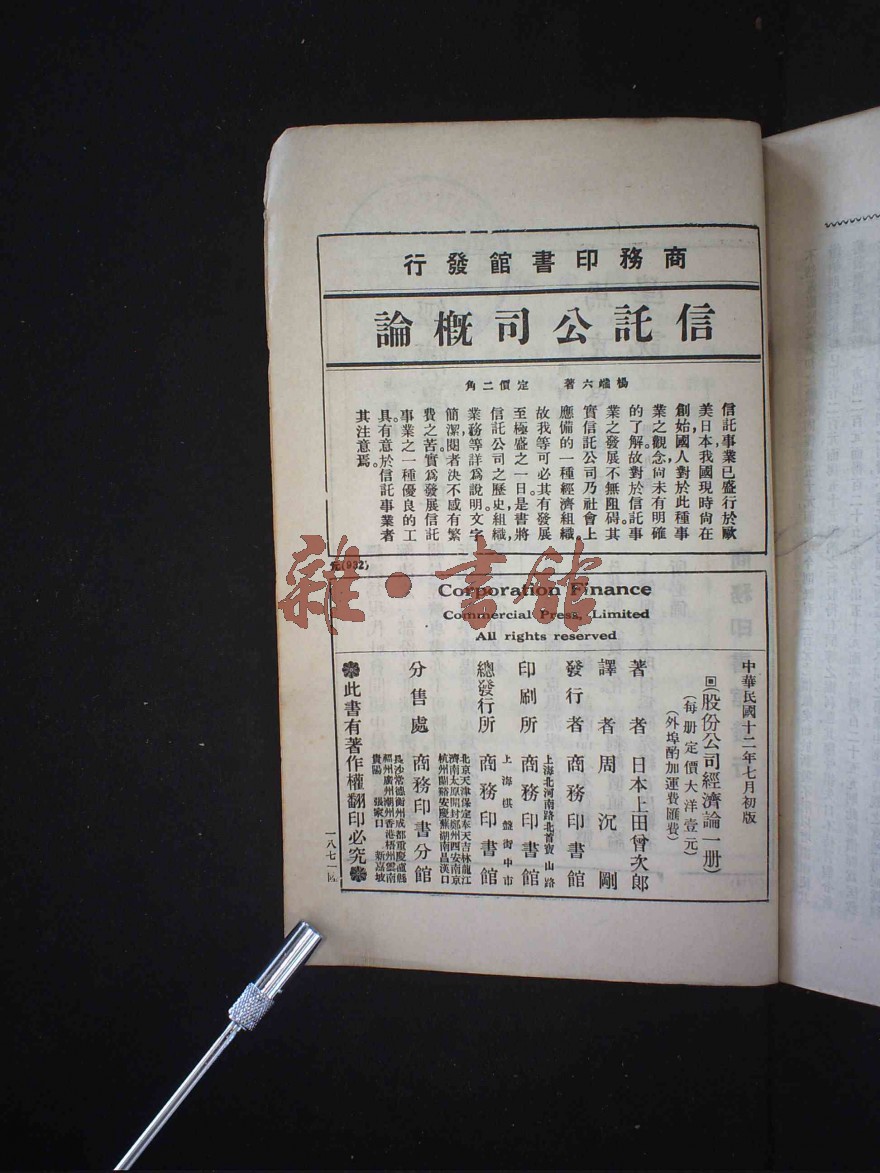 商務印書館發行
信託公司概論
楊端六著　定價二角
信託事業已盛行於歐
美日本，我國現時尚在
創始，國人對於此種事
業之觀念，向未有明確
的了解，故對於信託事
業之發展，不無阻碍。其
實信託公司乃社會上
應備的一種經濟組織。
故我等可必其有發展
至極盛之一日。是書將
信託公司之歷史，組織，
業務等詳爲說明，文字
簡潔，閱者決不感有繁
費之苦。實爲發展信託
事業之一種優良的工
具。有意於信託事業者
其注意焉。
元(932)
Corporation Finance
Commercial Press, Limited
All rights reserved
中華民國十二年七月初版
(股份公司經濟論一册)
(每册定價大洋壹元)
(外埠酌加運費匯費)
著者　日本上田曾次郎
譯者　周沉剛
發行者　商務印書館
上海北河南路北首寶山路
印刷所　商務印書館
上海棋盤街中市
總發行所　商務印書館
北京天津保定奉天吉林龍江
濟南太原開封鄭州西安南京
杭州蘭谿安慶蕪湖南昌漢口
分售處　商務印書分館
長沙常德衡州成都重慶瀘縣
福州廣州潮州香港梧州雲南
貴陽　張家口　新嘉坡
此書有著作權翻印必究
一八七一
雜·書館